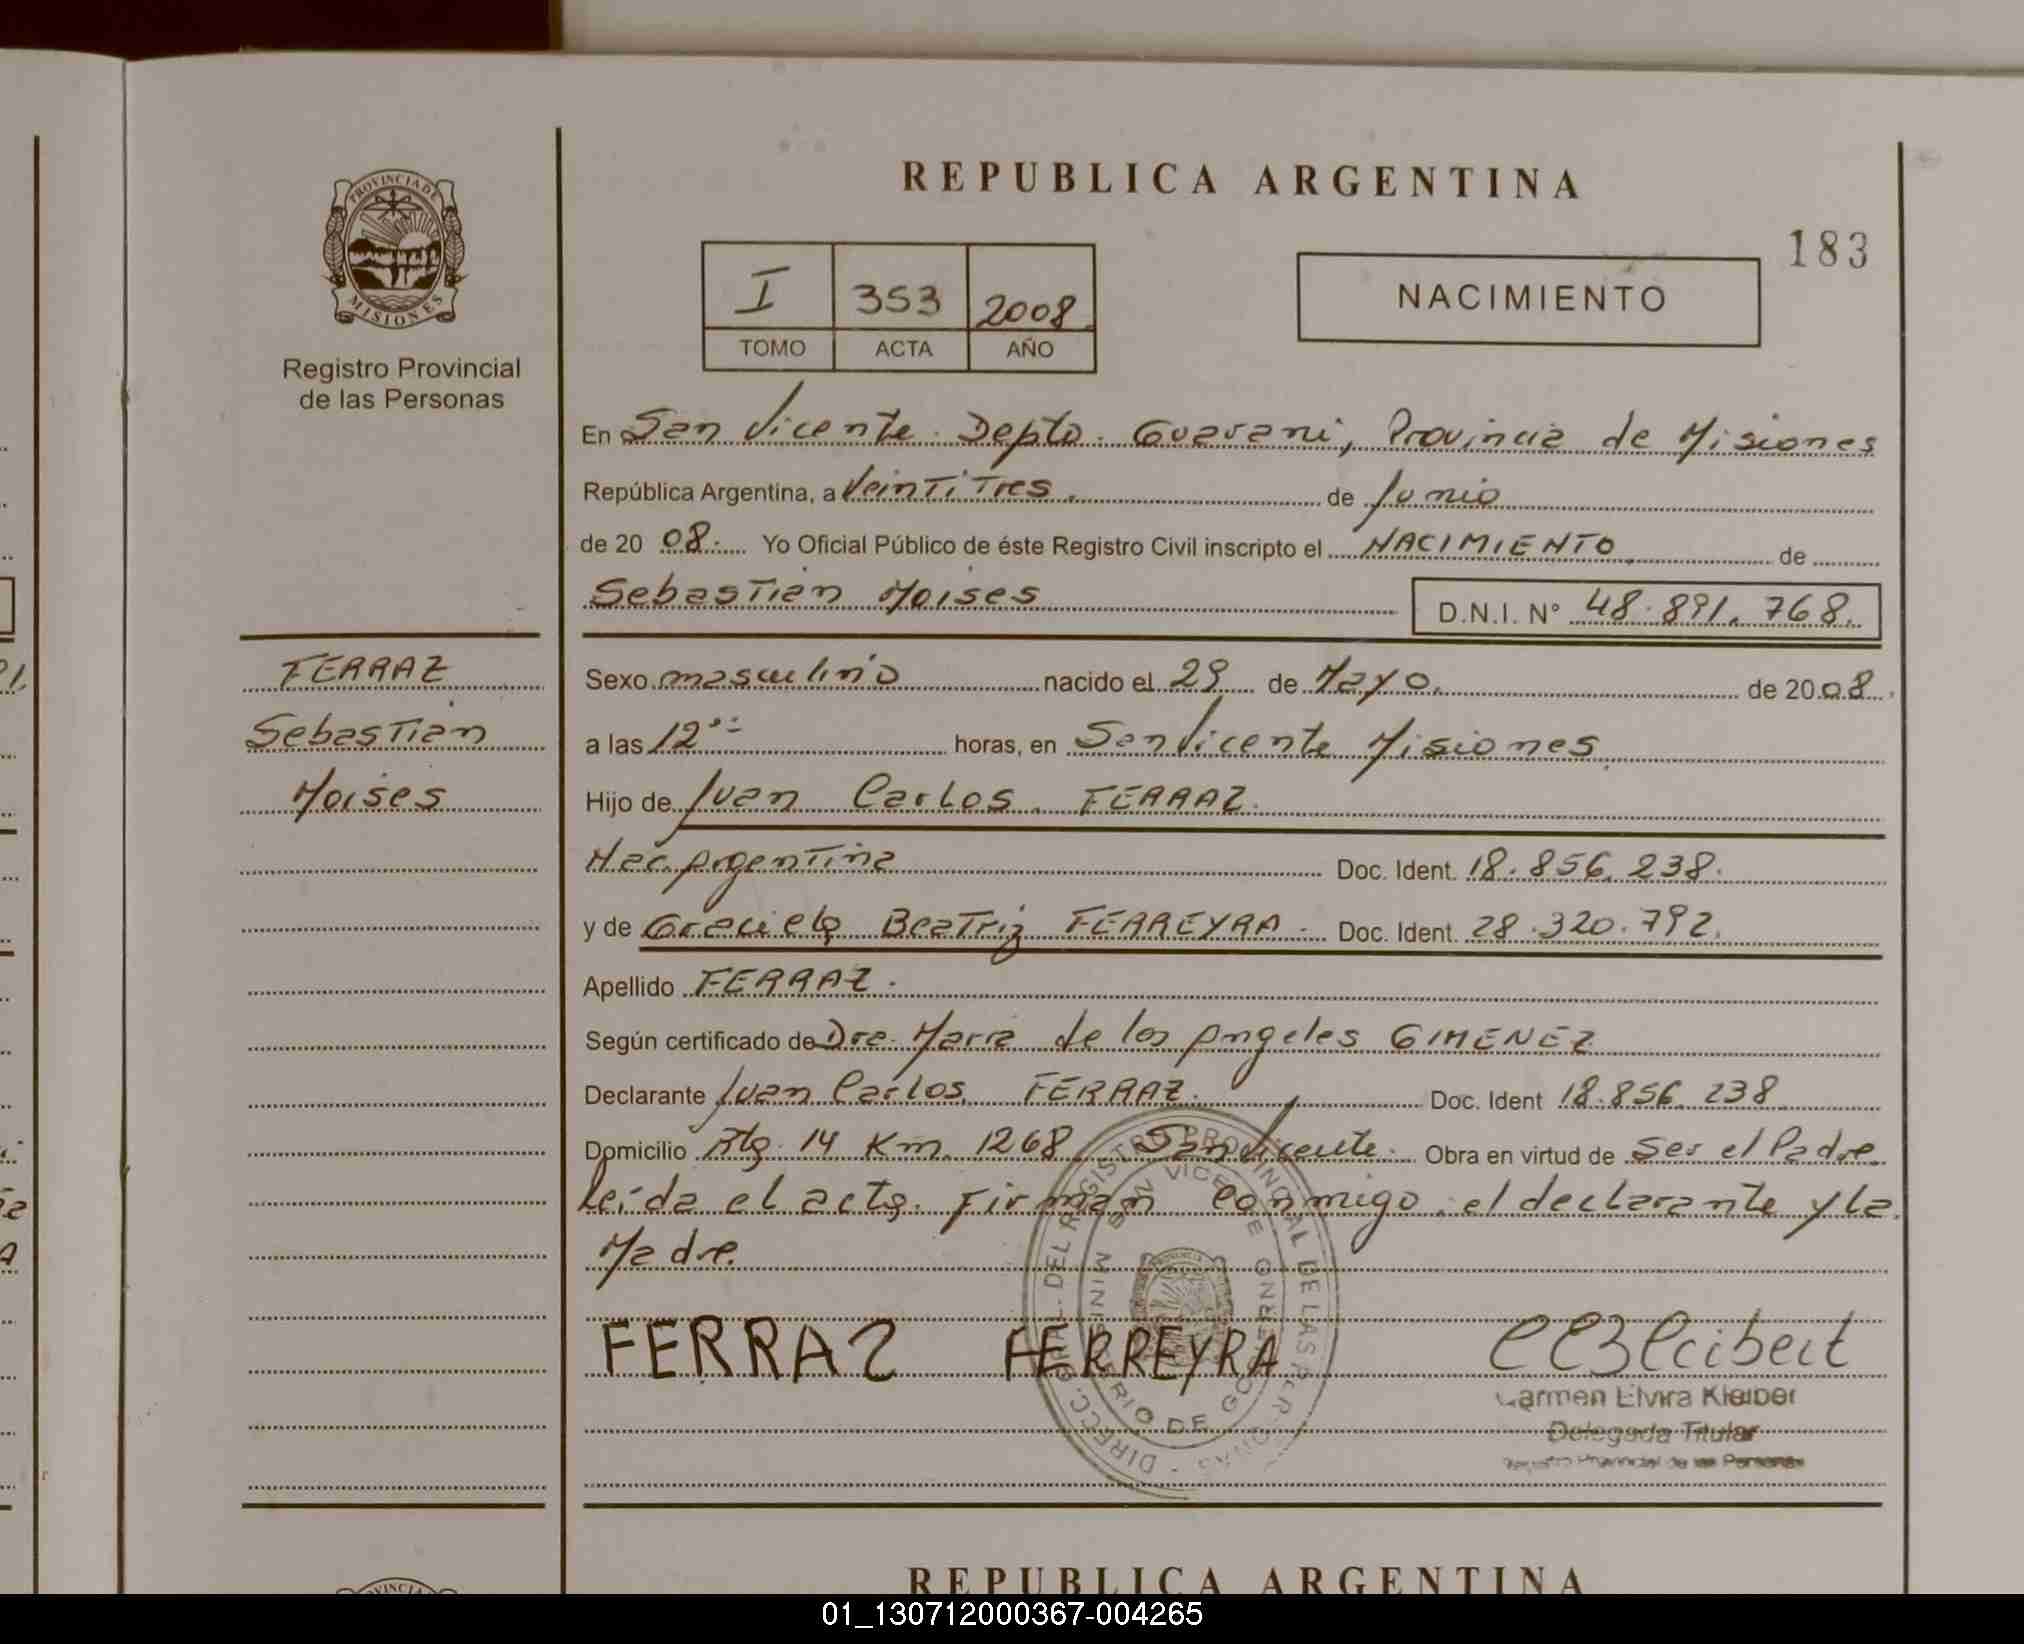 REPUBLICA ARGENTINA
183
PROVINCIA DE MISIONES
Registro Provincial
de las Personas
I 353 2008
TOMO ACTA AÑO
NACIMIENTO
En San Vicente. Depto. Guarani, Provincia de Misiones
República Argentina, a Veintitres. de Junio
de 20 08. Yo Oficial Público de éste Registro Civil inscripto el NACIMIENTO de
Sebastian Moises D.N.I. N° 48.891.768.
FERRAZ
Sebastian
Moises
Sexo masculino nacido el 29 de Mayo. de 20 08.
a las 12 horas, en San Vicente Misiones
Hijo de Juan Carlos. FERRAZ.
Nac. Argentina Doc. Ident. 18.856.238.
y de Graciela Beatriz FERREYRA. Doc. Ident. 28.320.792.
Apellido FERRAZ.
Según certificado de Dra. Maria de los Angeles GIMENEZ
Declarante Juan Carlos FERRAZ. Doc. Ident 18.856.238
Domicilio Rta. 14 Km. 1268. San Vicente. Obra en virtud de ser el Padre
Leída el acta. Firman conmigo. el declarante y la
Madre.
FERRAZ FERREYRA
DIRECC. GRAL. DEL REGISTRO PROVINCIAL DE LAS PERSONAS
MINISTERIO DE GOBIERNO
SAN VICENTE
Carmen Elvira Kleiber
Delegada Titular
Registro Provincial de las Personas
REPUBLICA ARGENTINA
01_130712000367-004265